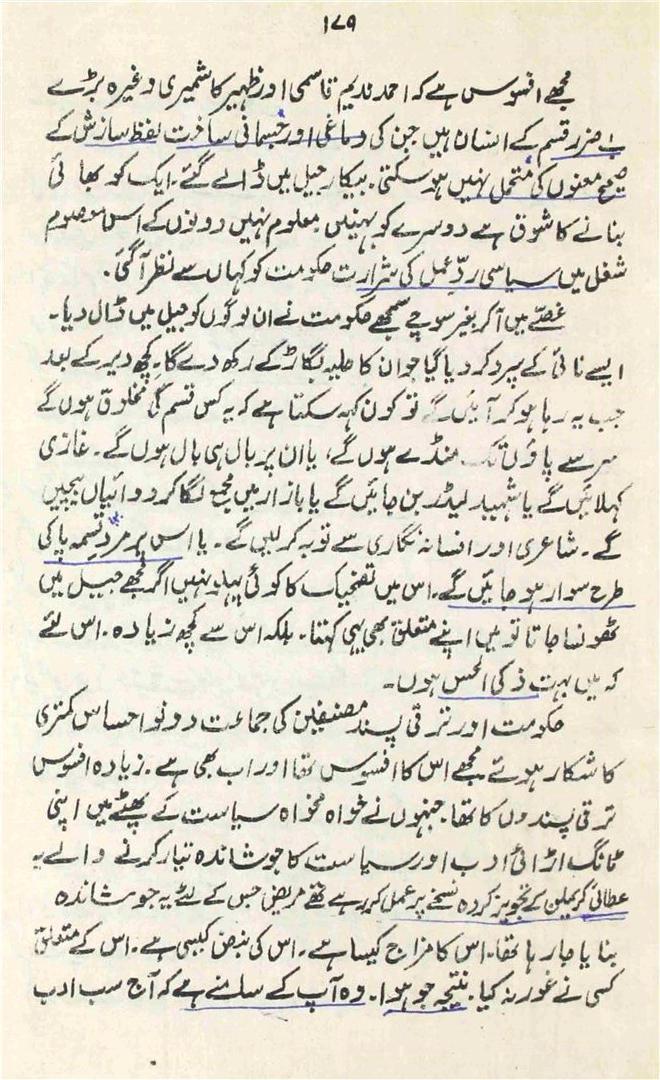 ۱۷۹
مجھے افسوس ہے کہ احمد ندیم قاسمی اور ظہیر کاشمیری وغیرہ بڑے
بے ضرر قسم کے انسان ہیں جن کی دماغی اور جسمانی ساخت لفظ سازش کے
صحیح معنوں کی متحمل نہیں ہو سکتی۔ بیکار جیل میں ڈالے گئے۔ ایک کو بھائی
بنانے کا شوق ہے دوسرے کو بہنیں معلوم نہیں دونوں کے اس معصوم
شغل میں سیاسی ردِّ عمل کی شرارت حکومت کو کہاں سے نظر آ گئی۔
غصّے میں آ کر بغیر سوچے سمجھے حکومت نے ان لوگوں کو جیل میں ڈال دیا۔
ایسے نائی کے سپرد کر دیا گیا جو ان کا حلیہ بگاڑ کے رکھ دے گا۔ کچھ دیر کے بعد
جب یہ رہا ہو کر آئیں گے تو کون کہہ سکتا ہے کہ یہ کس قسم کی مخلوق ہوں گے
سر سے پاؤں تک منڈے ہوں گے، یا ان پر بال ہی بال ہوں گے۔ غازی
کہلائیں گے یا شہید لیڈر بن جائیں گے یا بازار میں مجمع لگا کر دوائیاں بیچیں
گے۔ شاعری اور افسانہ نگاری سے توبہ کر لیں گے۔ یا اس پر مرد تسمہ پا کی
طرح سوار ہو جائیں گے۔ اس میں تضحیک کا کوئی پہلو نہیں اگر مجھے جیل میں
ٹھونسا جاتا تو میں اپنے متعلق بھی یہی کہتا۔ بلکہ اس سے کچھ زیادہ۔ اس لئے
کہ میں بہت ذکی الحس ہوں۔
حکومت اور ترقی پسند مصنفین کی جماعت دونو احساس کمتری
کا شکار ہوئے مجھے اس کا افسوس تھا اور اب بھی ہے۔ زیادہ افسوس
ترقی پسندوں کا تھا۔ جنہوں نے خواہ مخواہ سیاست کے پھٹے میں اپنی
ٹانگ اڑائی ادب اور سیاست کا جوشاندہ تیار کرنے والے یہ
عطائی کریملن کے تجویز کردہ نسخے پر عمل کر رہے تھے مریض جس کے لئے یہ جوشاندہ
بنایا جا رہا تھا۔ اس کا مزاج کیسا ہے۔ اس کی نبض کیسی ہے۔ اس کے متعلق
کسی نے غور نہ کیا۔ نتیجہ جو ہوا۔ وہ آپ کے سامنے ہے کہ آج سب ادب